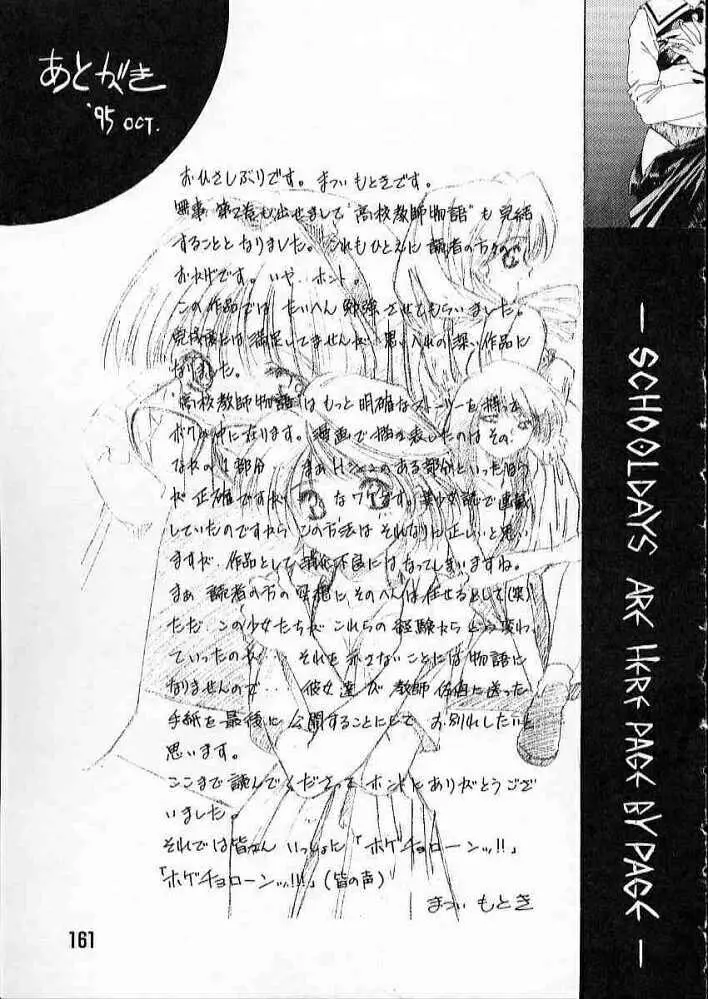 あとがき
'95 OCT.
おひさしぶりです。まついもときです。
無事 第2巻も出せまして"高校教師物語"も完結
することとなりました。これもひとえに読者の方々の
おかげです。いや、ホント。
この作品では たいへん勉強させてもらいました。
には満足してませんが 思い入れの深い作品に
なりました。
"高校教師物語"はもっと明確なストーリーを持って
ボクの中に在ります。漫画で描き表したのはその
なかの1部分… まぁHシーンのある部分といった方
が 正確ですが なワケです。美少女誌で連載
していたのですから この方法は それなりに正しいと思い
ますが、作品として消化不良にはなってしまいますね。
まぁ 読者の方の に、そのへんは任せるとして(笑)
ただ、この少女たちが これらの経験からどう変わ
っていったのか… それを示さないことには物語に
なりませんので… 彼女達が 教師 に送った
手紙を最後に公開することにして お別れしたいと
思います。
ここまで読んでくださって ホントにありがとうござ
いました。
それでは皆さん いっしょに「ホゲチョローンッ!!」
「ホゲチョローンッ!!!」(皆の声)
まつい もとき
161
— SCHOOLDAYS ARE HERE PAGE BY PAGE —